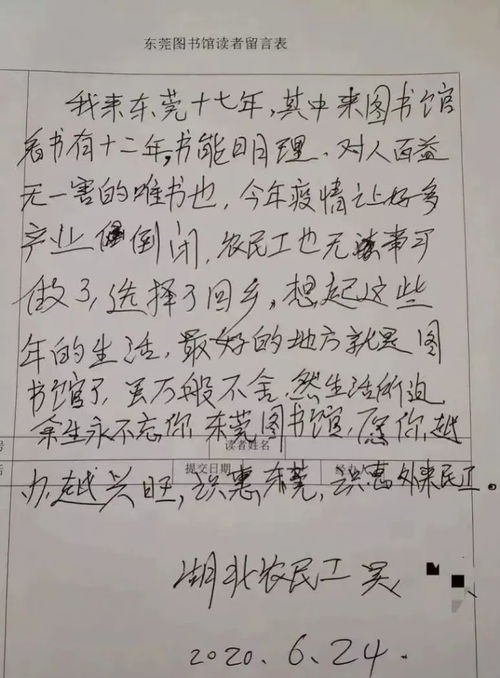 东莞图书馆读者留言表
我来东莞十七年，其中来图书馆
看书有十二年，书能明理、对人百益
无一害的唯书也，今年疫情让好多
产业倒闭，农民工也无事可
做了，选择了回乡，想起这些
年的生活，最好的地方就是图
书馆了，万般不舍，然生活所迫
余生永不忘你，东莞图书馆，愿你越
读者姓名
提交日期
办越兴旺，识惠东莞，识惠外来民工。
湖北农民工 吴
2020.6.24.